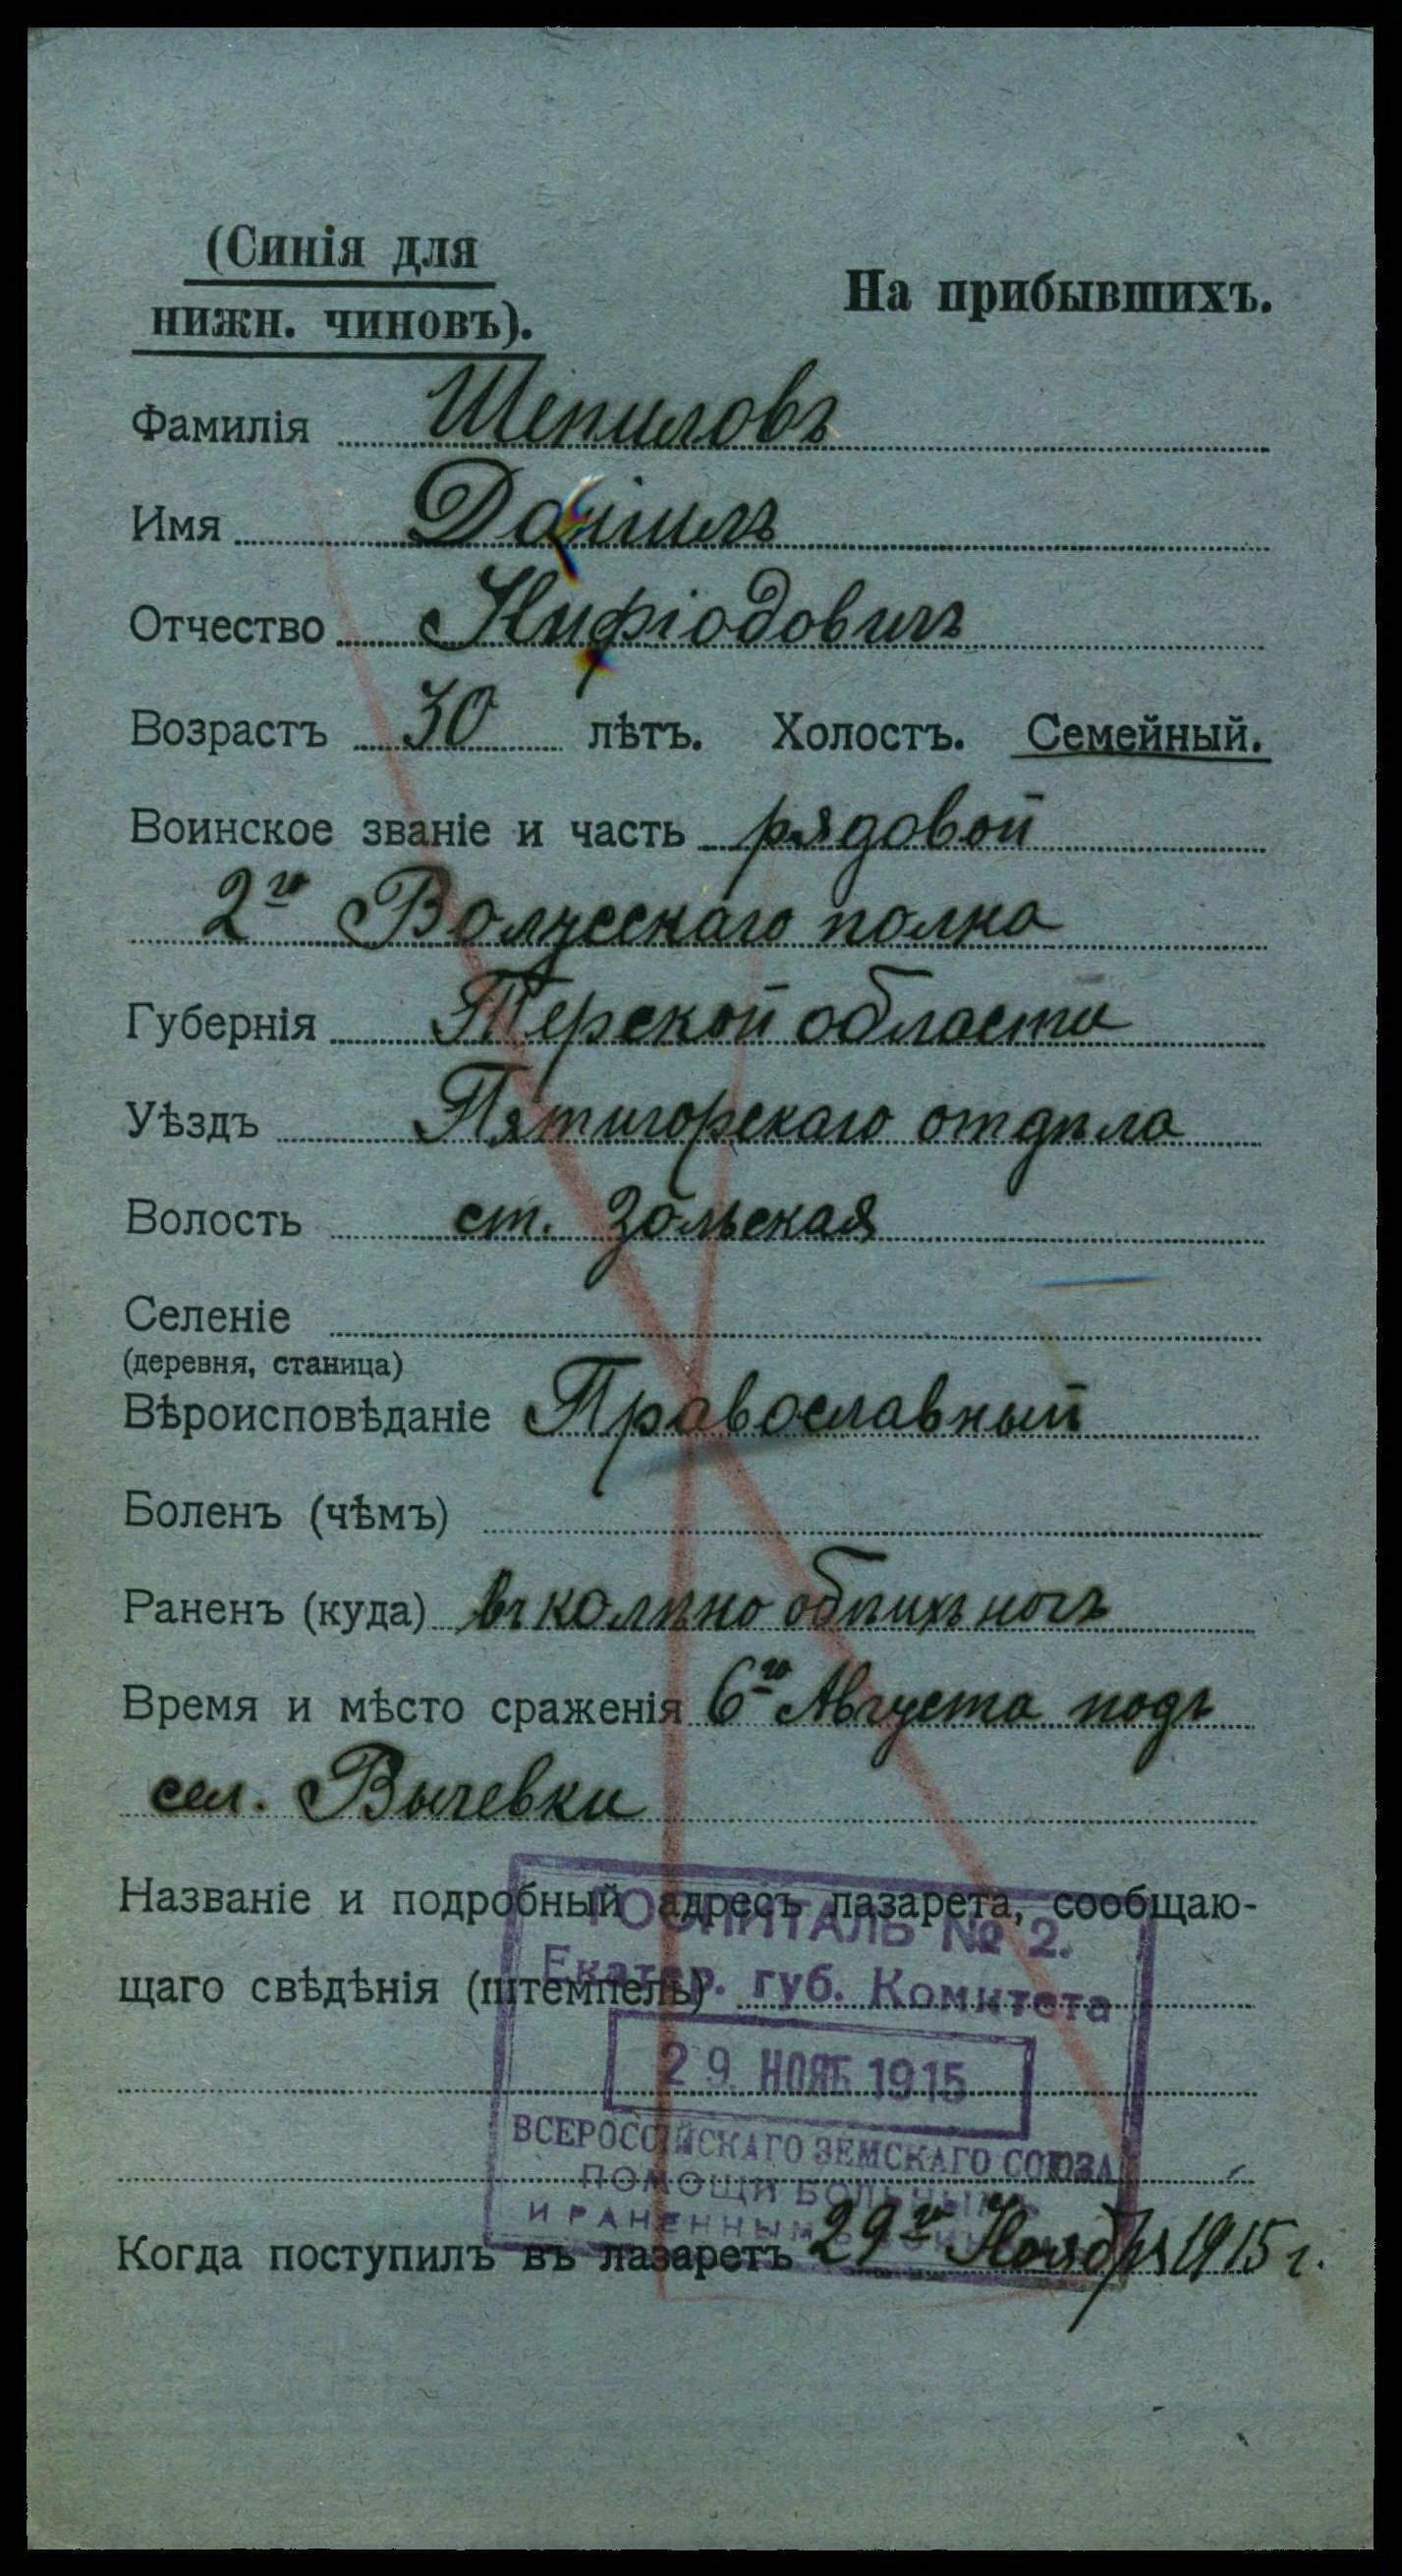 (Синія для
нижн. чиновъ).
На прибывшихъ.
Фамилія Шепиловъ
Имя Даніилъ
Отчество Нифіодовичъ
Возрастъ 30 лѣтъ. Холостъ. Семейный.
Воинское званіе и часть рядовой
2го Волгсскаго полка
Губернія Терской области
Уѣздъ Пятигорскаго отдѣла
Волость ст. Зольская
Селеніе
(деревня, станица)
Вѣроисповѣданіе Православный
Боленъ (чѣмъ)
Раненъ (куда) въ колѣно обѣихъ ногъ
Время и мѣсто сраженія 6го Августа подъ
сел. Вычевки
Названіе и подробный адресъ лазарета, сообщаю-
ГОСПИТАЛЬ № 2.
щаго свѣдѣнія (штемпель)
Екатер. губ. Комитета
29 НОЯБ 1915
ВСЕРОССІЙСКАГО ЗЕМСКАГО СОЮЗА
ПОМОЩИ БОЛЬНЫМЪ
И РАНЕННЫМЪ
Когда поступилъ въ лазаретъ 29го Ноября 1915 г.